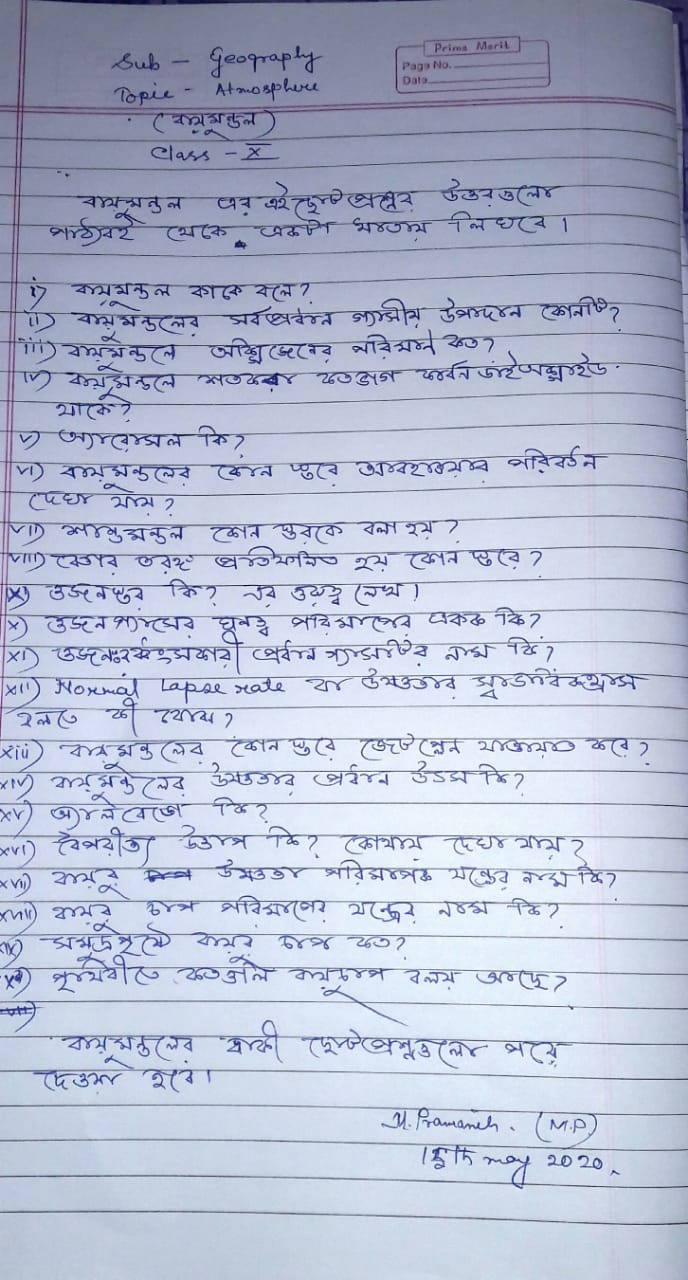 Prime Merit
Page No.
Date
Sub - Geography
Topic - Atmosphere
(বায়ুমন্ডল)
Class - X
বায়ুমন্ডল এর এই ছোট প্রশ্নের উত্তরগুলো
পাঠ্যবই থেকে একটা খাতায় লিখবে।
i) বায়ুমন্ডল কাকে বলে?
ii) বায়ুমন্ডলের সর্বপ্রধান গ্যাসীয় উপাদান কোনটি?
iii) বায়ুমন্ডলে অক্সিজেনের পরিমাণ কত?
iv) বায়ুমন্ডলে শতকরা কতভাগ কার্বন ডাই অক্সাইড
থাকে?
v) অ্যারোসল কি?
vi) বায়ুমন্ডলের কোন স্তরে আবহাওয়ার পরিবর্তন
দেখা যায়?
vii) শান্তমন্ডল কোন স্তরকে বলা হয়?
viii) বেতার তরঙ্গ প্রতিফলিত হয় কোন স্তরে?
ix) ওজনস্তর কি? এর গুরুত্ব লেখ।
x) ওজন গ্যাসের ঘনত্ব পরিমাপের একক কি?
xi) ওজন ধ্বংসকারী প্রধান গ্যাসটির নাম কি?
xii) Normal Lapse rate বা উষ্ণতার স্বাভাবিক হ্রাস
বলতে কী বোঝ?
xiii) বায়ুমন্ডলের কোন স্তরে জেটপ্লেন যাতায়াত করে?
xiv) বায়ুমন্ডলের উষ্ণতার প্রধান উৎস কি?
xv) অ্যালবেডো কি?
xvi) বৈপরীত্য উত্তাপ কি? কোথায় দেখা যায়?
xvii) বায়ুর উষ্ণতা পরিমাপক যন্ত্রের নাম কি?
xviii) বায়ুর চাপ পরিমাপের যন্ত্রের নাম কি?
xix) সমুদ্রপৃষ্ঠে বায়ুর চাপ কত?
xx) পৃথিবীতে কতগুলি বায়ুচাপ বলয় আছে?
বায়ুমন্ডলের বাকী ছোট প্রশ্নগুলো পরে
দেওয়া হবে।
M. Pramanik. (M.P)
15th may 2020.